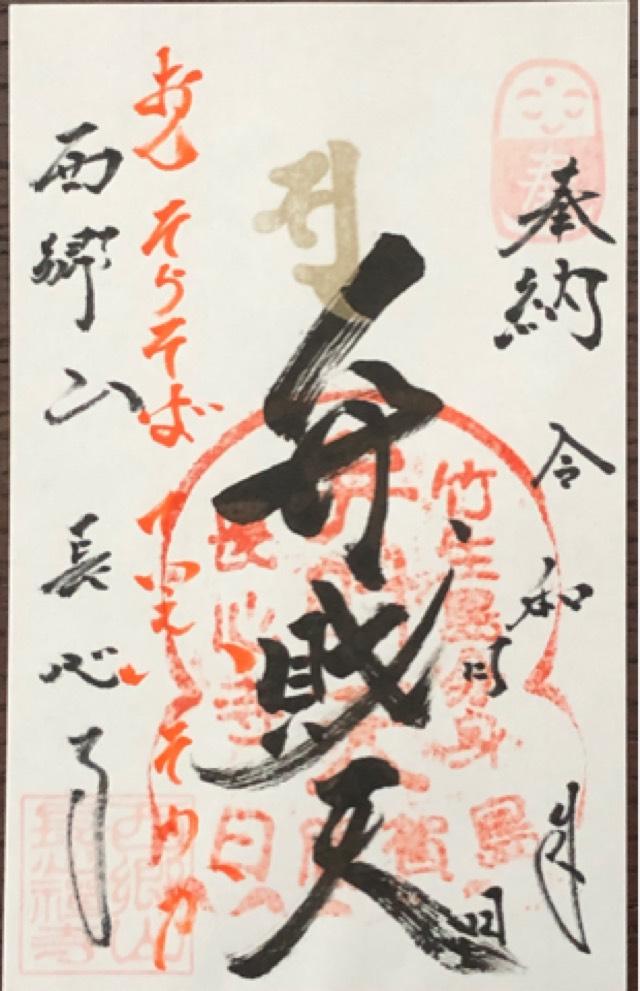 奉納 令和 年 月 日
弁財天
おん そらそば ていえい そわか
西郷山 長心寺
竹生島分身
長心寺
西郷山
長心禅寺